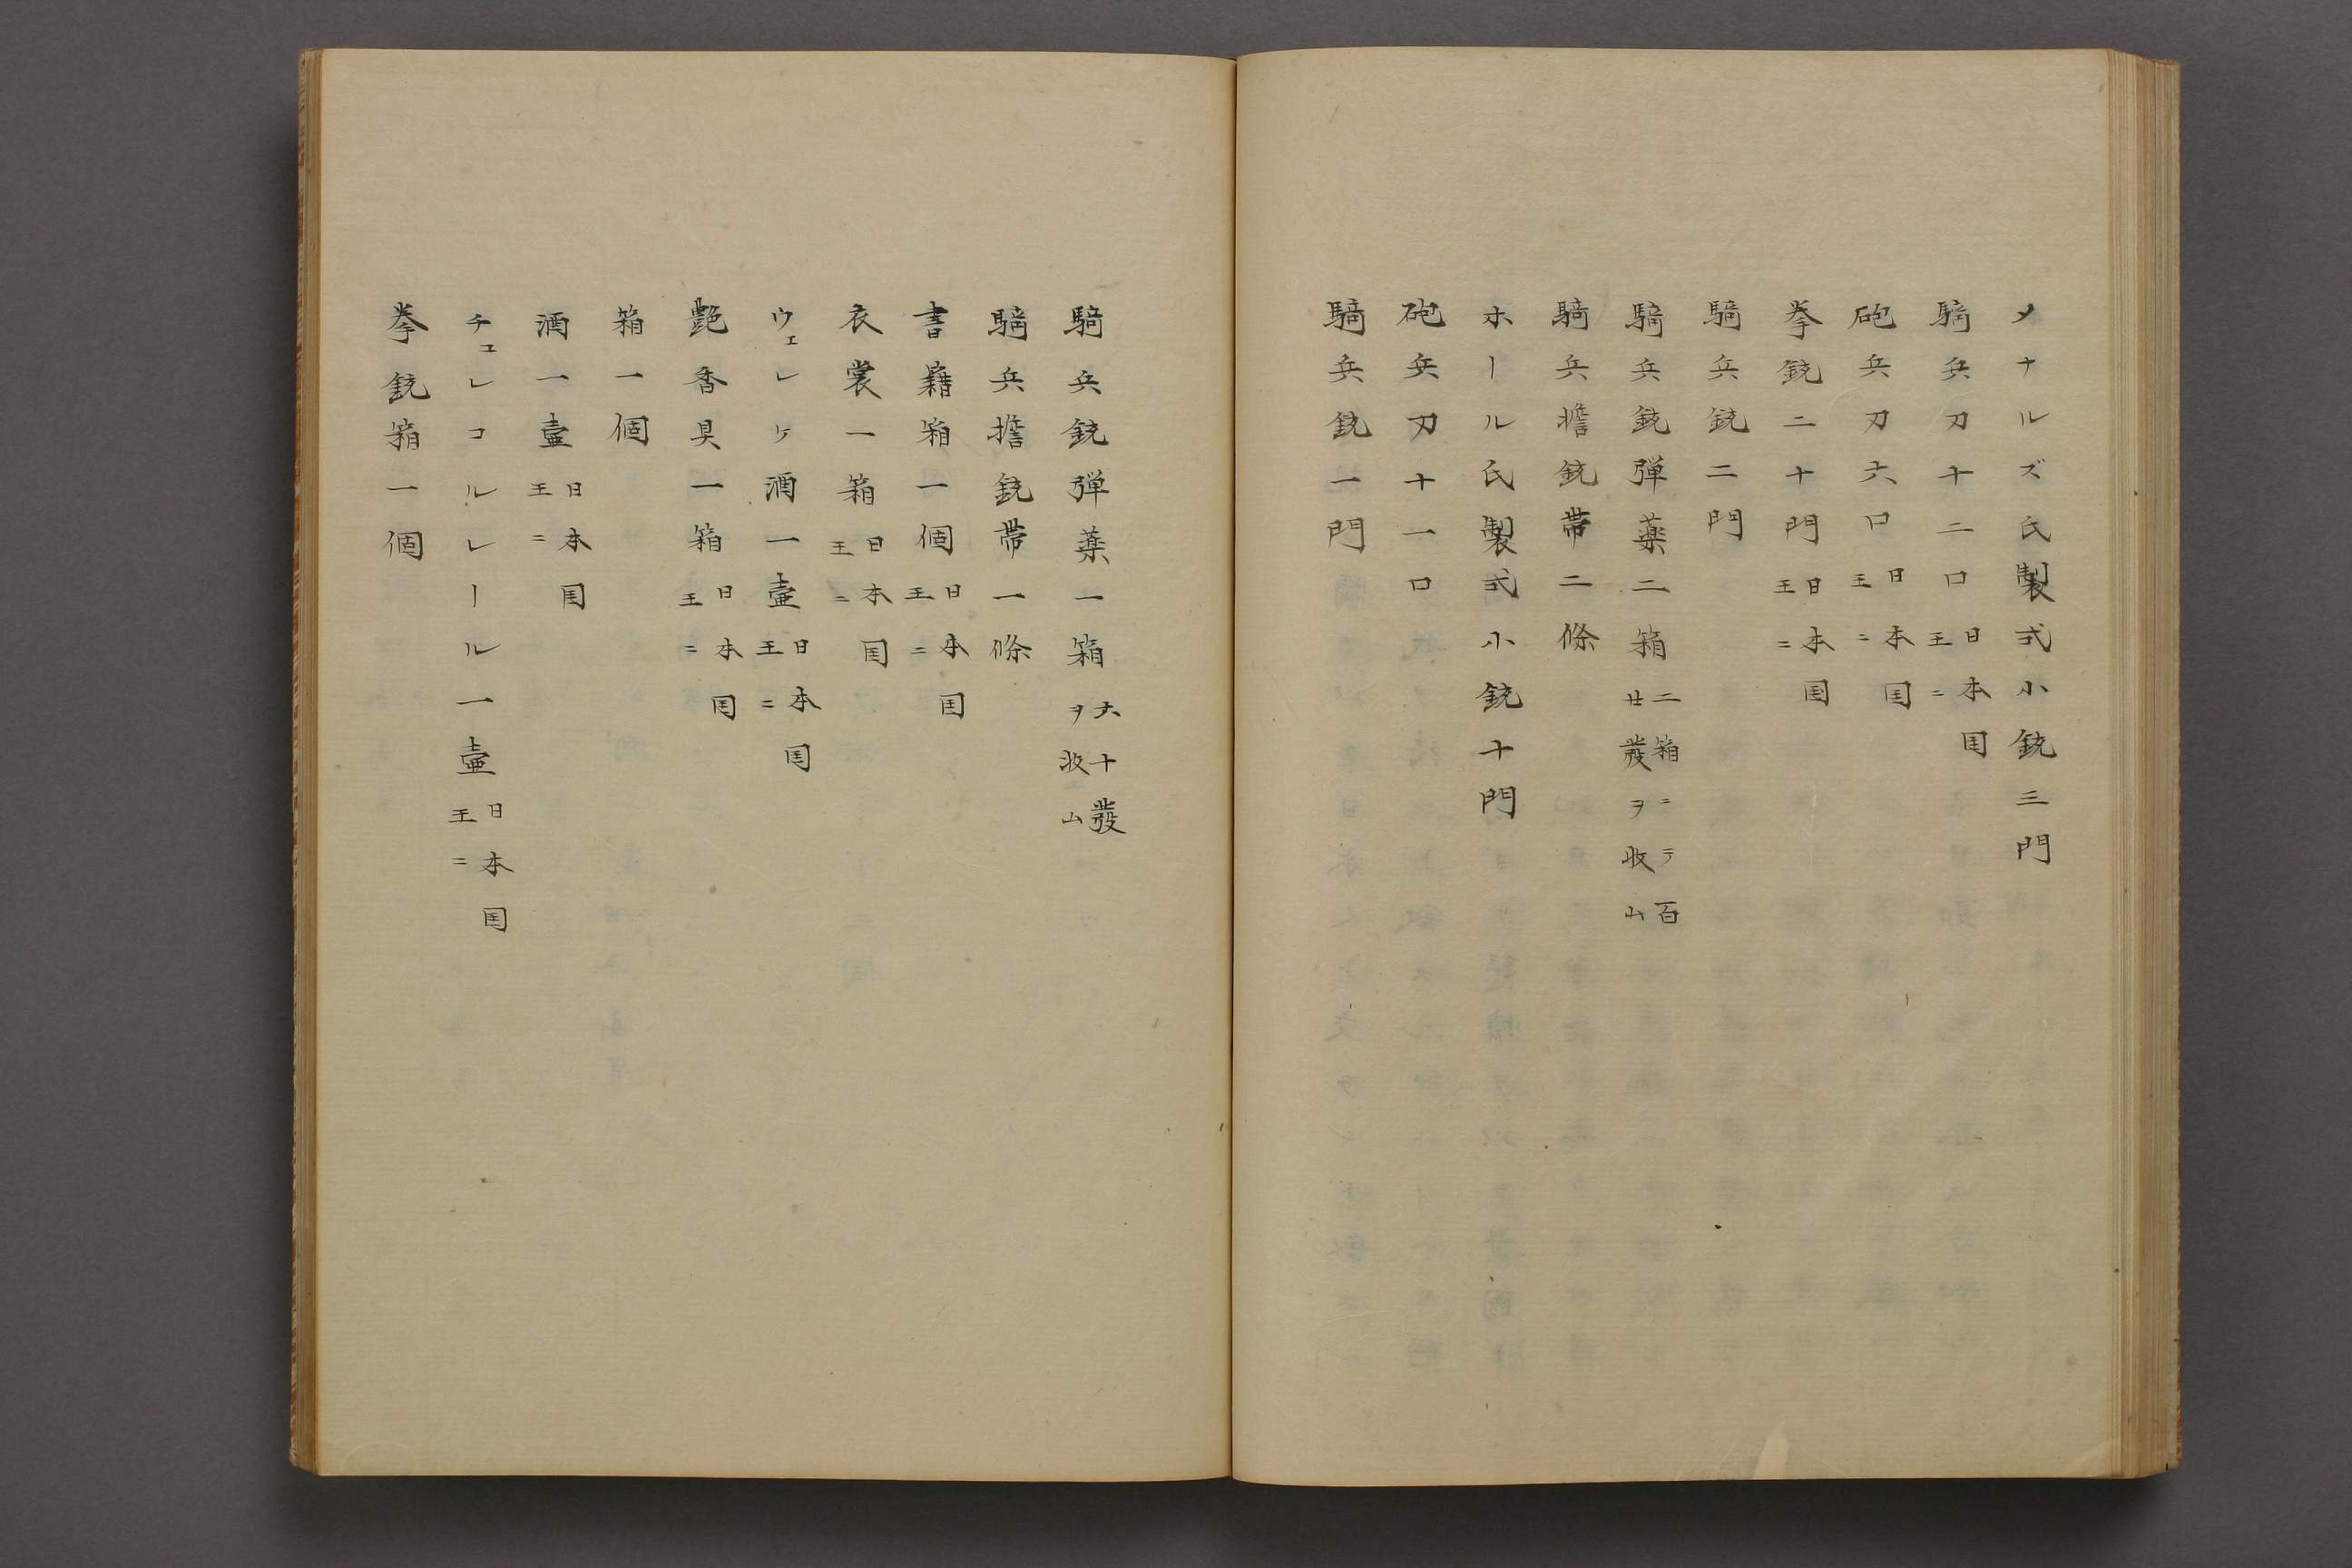 メナルズ氏製式小銃三門
騎兵刀十二口日本国王ニ
砲兵刀六口日本国王ニ
拳銃二十門日本国王ニ
騎兵銃二門
騎兵銃弾薬二箱二箱ニテ百廿發ヲ收ム
騎兵擔銃帯二條
ホール氏製式小銃十門
砲兵刀十一口
騎兵銃一門
騎兵銃弾薬一箱六十發ヲ收ム
騎兵擔銃帯一條
書籍箱一個日本国王ニ
衣裳一箱日本国王ニ
ウェレケ酒一壷日本国王ニ
艶香具一箱日本国王ニ
箱一個
酒一壷日本国王ニ
チェレコルレール一壷日本国王ニ
拳銃箱一個